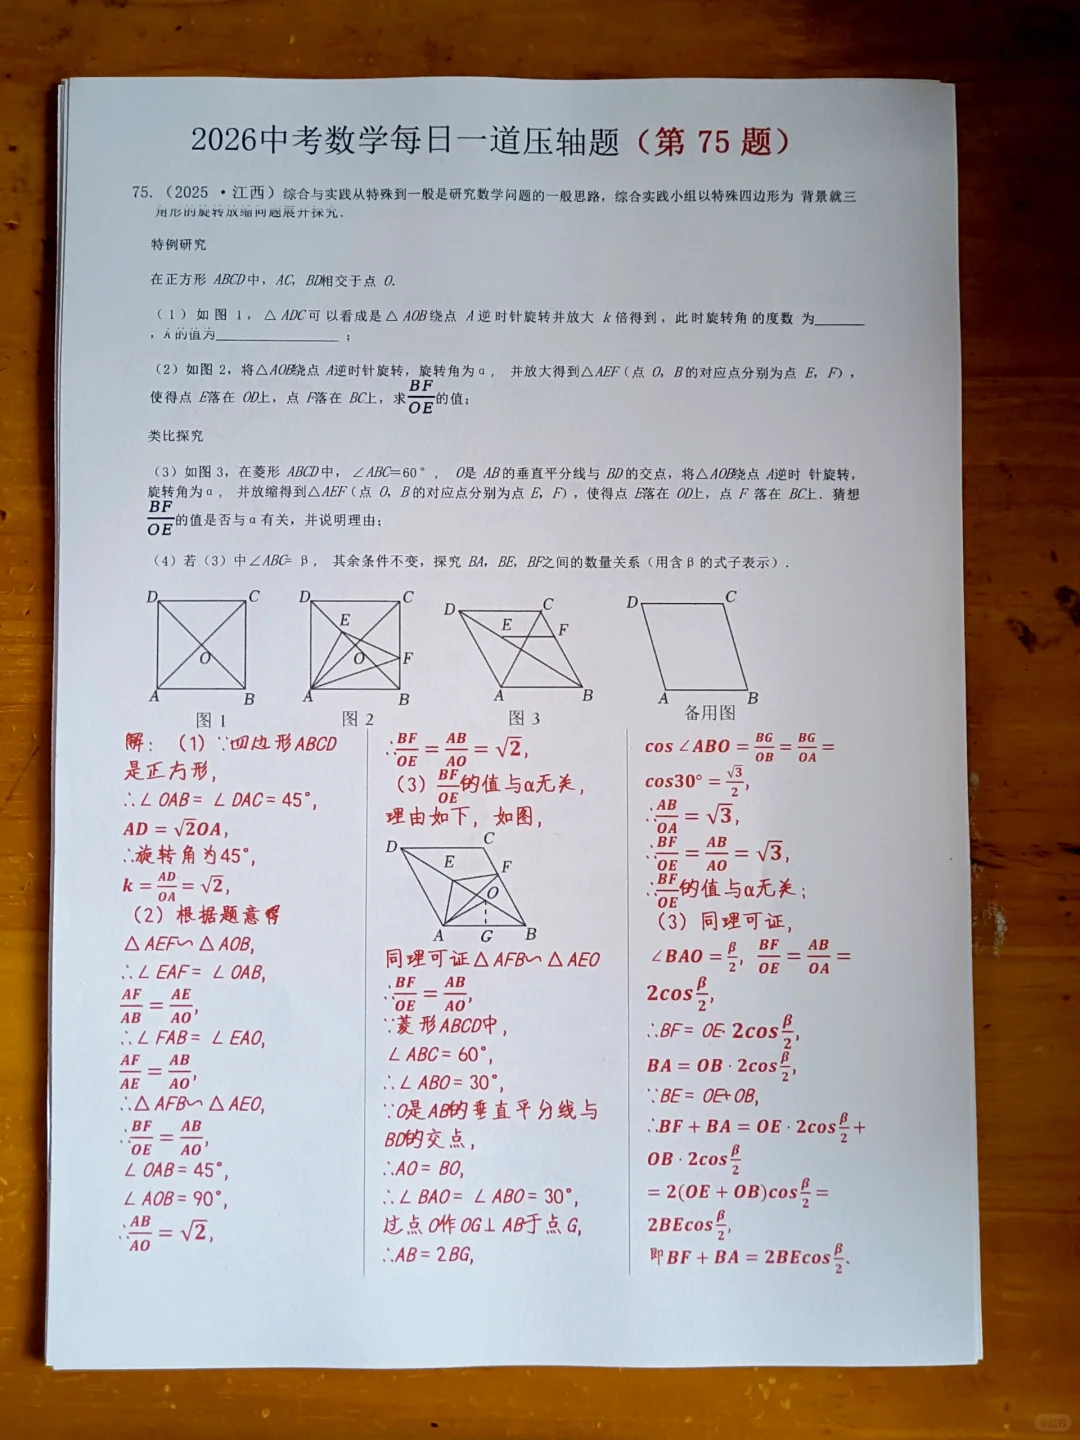 2026中考数学每日一道压轴题（第 75 题）
75.（2025 · 江西）综合与实践从特殊到一般是研究数学问题的一般思路，综合实践小组以特殊四边形为 背景就三
角形的旋转放缩问题展开探究．
特例研究
在正方形 ABCD中，AC，BD相交于点 O.
（1）如图 1，△ ADC可以看成是△ AOB绕点 A逆时针旋转并放大 k倍得到，此时旋转角的度数 为______
，k的值为______________ ；
（2）如图 2，将△AOB绕点 A逆时针旋转，旋转角为α， 并放大得到△AEF（点 O，B的对应点分别为点 E，F），
使得点 E落在 OD上，点 F落在 BC上，求BF/OE的值；
类比探究
（3）如图 3，在菱形 ABCD中，∠ABC=60°， O是 AB的垂直平分线与 BD的交点，将△AOB绕点 A逆时 针旋转，
旋转角为α， 并放缩得到△AEF（点 O，B的对应点分别为点 E，F），使得点 E落在 OD上，点 F 落在 BC上．猜想
BF/OE的值是否与α有关，并说明理由；
（4）若（3）中∠ABC= β， 其余条件不变，探究 BA，BE，BF之间的数量关系（用含β的式子表示）．
D C O A B
图 1
D C E O F A B
图 2
D C E F A B
图 3
D C A B
备用图
解：（1）∵四边形ABCD
是正方形，
∴∠OAB=∠DAC=45°，
AD=√2OA，
∴旋转角为45°，
k=AD/OA=√2，
（2）根据题意得
△AEF∽△AOB，
∴∠EAF=∠OAB，
AF/AB=AE/AO，
∴∠FAB=∠EAO，
AF/AE=AB/AO，
∴△AFB∽△AEO，
∴BF/OE=AB/AO，
∠OAB=45°，
∠AOB=90°，
∴AB/AO=√2，
∴BF/OE=AB/AO=√2，
（3）BF/OE的值与α无关，
理由如下，如图，
D C E F O A G B
同理可证△AFB∽△AEO
∴BF/OE=AB/AO，
∵菱形ABCD中，
∠ABC=60°，
∴∠ABO=30°，
∵O是AB的垂直平分线与
BD的交点，
∴AO=BO，
∴∠BAO=∠ABO=30°，
过点O作OG⊥AB于点G，
∴AB=2BG，
cos∠ABO=BG/OB=BG/OA=
cos30°=√3/2，
∴AB/OA=√3，
∴BF/OE=AB/AO=√3，
∴BF/OE的值与α无关；
（3）同理可证，
∠BAO=β/2，BF/OE=AB/OA=
2cosβ/2，
∴BF=OE·2cosβ/2，
BA=OB·2cosβ/2，
∵BE=OE+OB，
∴BF+BA=OE·2cosβ/2+
OB·2cosβ/2
=2(OE+OB)cosβ/2=
2BEcosβ/2，
即BF+BA=2BEcosβ/2．
小红书